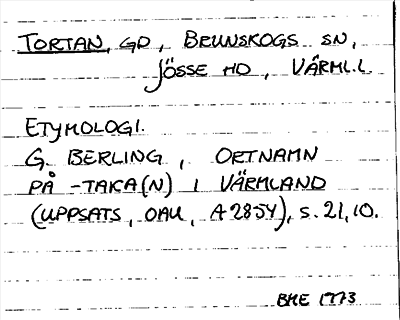 TORTAN, GD, BRUNSKOGS SN,
JÖSSE HD, VÄRML.L.
ETYMOLOGI.
G. BERLING, ORTNAMN
PÅ -TAKA(N) I VÄRMLAND
(UPPSATS, OAU, A 2854), S. 21, 10.
BHE 1973